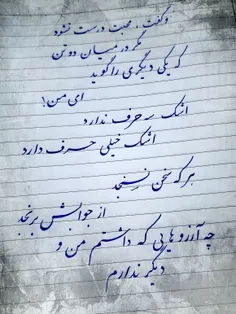 و گفت، محبت درست نشود
مگر در میان دو تن
که یکی دیگری را گوید
ای من!
اشک رحرف ندارد
اشک خیلی حرف دارد
هر که سخن نسنجد
از جوابش برنجد
چه آرزوهایی که داشتم من و
دیگر ندارم